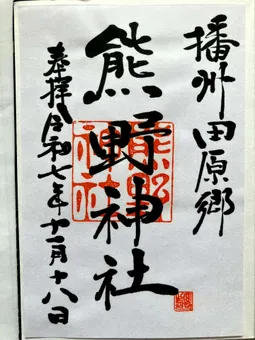 播州田原郷
熊野神社
奉拝 令和七年十一月十八日
熊野
神社